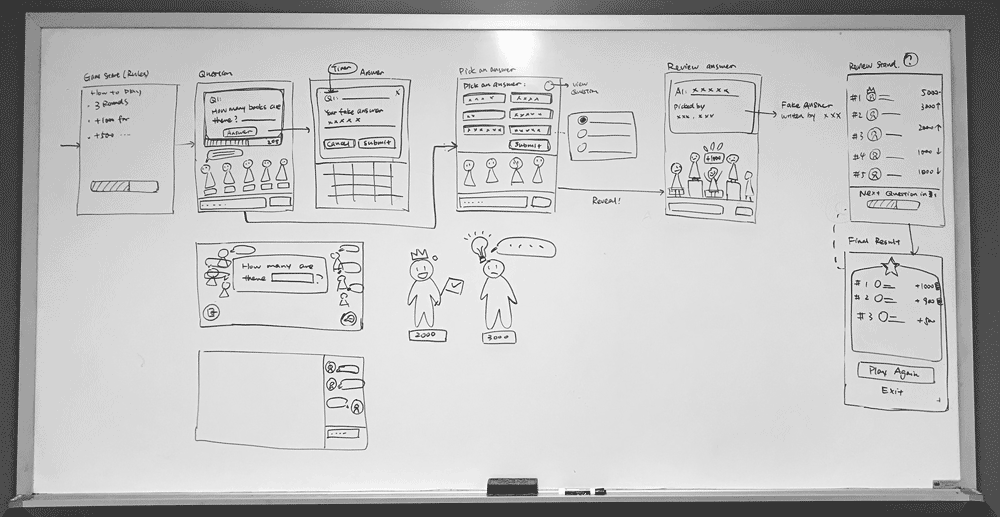 Game Start (Rules)
How to play
- 3 Rounds
- +1000 for
- +500 ....
Question
Q1:
How many books are
there?
Answer
20s
Timer
Answer
Q1:
x
Your fake answer
xxxxx
Cancel
Submit
Pick an answer
Pick an answer:
xxxx
xxxx
xx
xxxxx
xxxxx
xxxxx
Submit
view
question
Reveal!
Review answer
A1: xxxxx
Picked by
xxx, xxx
+1000
Fake Answer
written by xxx
Review Stand.
?
#1
5000-
#2
3000↑
#3
2000↑
#4
1000↓
#5
1000↓
Next Question in 3s
Final Result
#1
+1000
#2
+900
#3
+500
Play Again
Exit
How many are
there
?
2000
3000